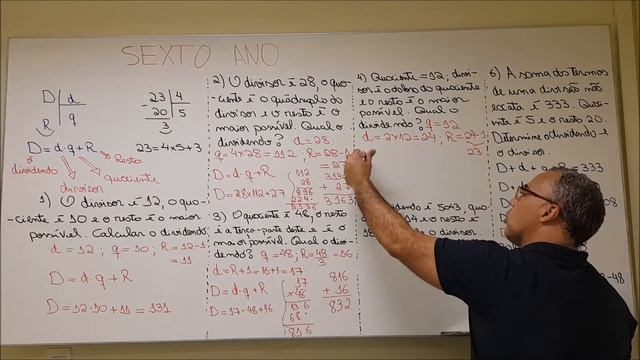 SEXTO ANO
D | d
R q
23 | 4
20 5
3
D = d·q + R
Resto
quociente
divisor
dividendo
23 = 4×5+3
1) O divisor é 12, o quo-
ciente é 10 e o resto é o maior
possível. Calcular o dividendo.
d = 12, q = 10; R = 12-1
= 11
D = d·q + R
D = 12·10 + 11 = 131
2) O divisor é 28, o quo-
ciente é o quádruplo do
divisor e o resto é o
maior possível. Qual o
dividendo? d = 28
q = 4×28 = 112, R = 28-1
= 27
D = d·q + R
D = 28×112+27
112
28
896
224·
3136
+ 27
3163
3) O quociente é 48, o resto
é a terça-parte deste e é o
maior possível. Qual o divi-
dendo? q = 48; R = 48/3 = 16
d = R+1 = 16+1 = 17
D = d·q + R
D = 17·48 + 16
17
×48
136
68·
816
816
+ 16
832
4) Quociente = 12, divi-
sor é o dobro do quociente
e o resto é o maior
possível. Qual o
dividendo? q = 12
d = 2×12 = 24, R = 24-1
23
dividendo é 5043, quo-
14 e o resto é
o divisor.
6) A soma dos termos
de uma divisão não
exata é 333. Quoci-
ente é 5 e o resto 20.
Determine o dividendo e
o divisor.
D + d + q + R = 333